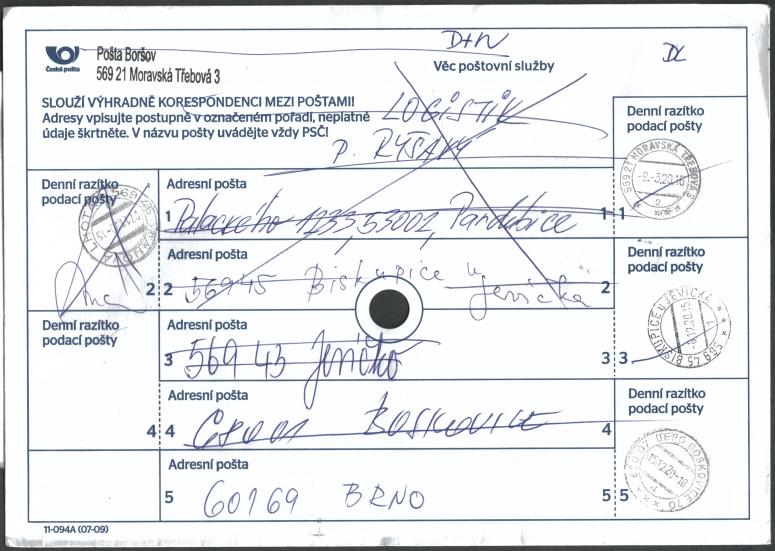 D+N
DL
Česká pošta
Pošta Boršov
569 21 Moravská Třebová 3
Věc poštovní služby
SLOUŽÍ VÝHRADNĚ KORESPONDENCI MEZI POŠTAMI!
Adresy vpisujte postupně v označeném pořadí, neplatné
údaje škrtněte. V názvu pošty uvádějte vždy PSČ!
LOGISTIK
P. RYŠAVÝ
Denní razítko
podací pošty
569 21 MORAVSKÁ TŘEBOVÁ 3
-9.-3.20.16
Denní razítko
podací pošty
Adresní pošta
1 Palackeho 1233, 53002, Pardubice 1 1
2 Adresní pošta
2 56945 Biskupice u Jevíčka 2
Denní razítko
podací pošty
569 45 BISKUPICE U JEVÍČKA
Denní razítko
podací pošty
Adresní pošta
3 569 43 Jevíčko 3 3
Adresní pošta
4 4 68001 BOSKOVICE 4
Denní razítko
podací pošty
680 07 DEPO BOSKOVICE 70
15.12.20-18
Adresní pošta
5 60169 BRNO 5 5
11-094A (07-09)